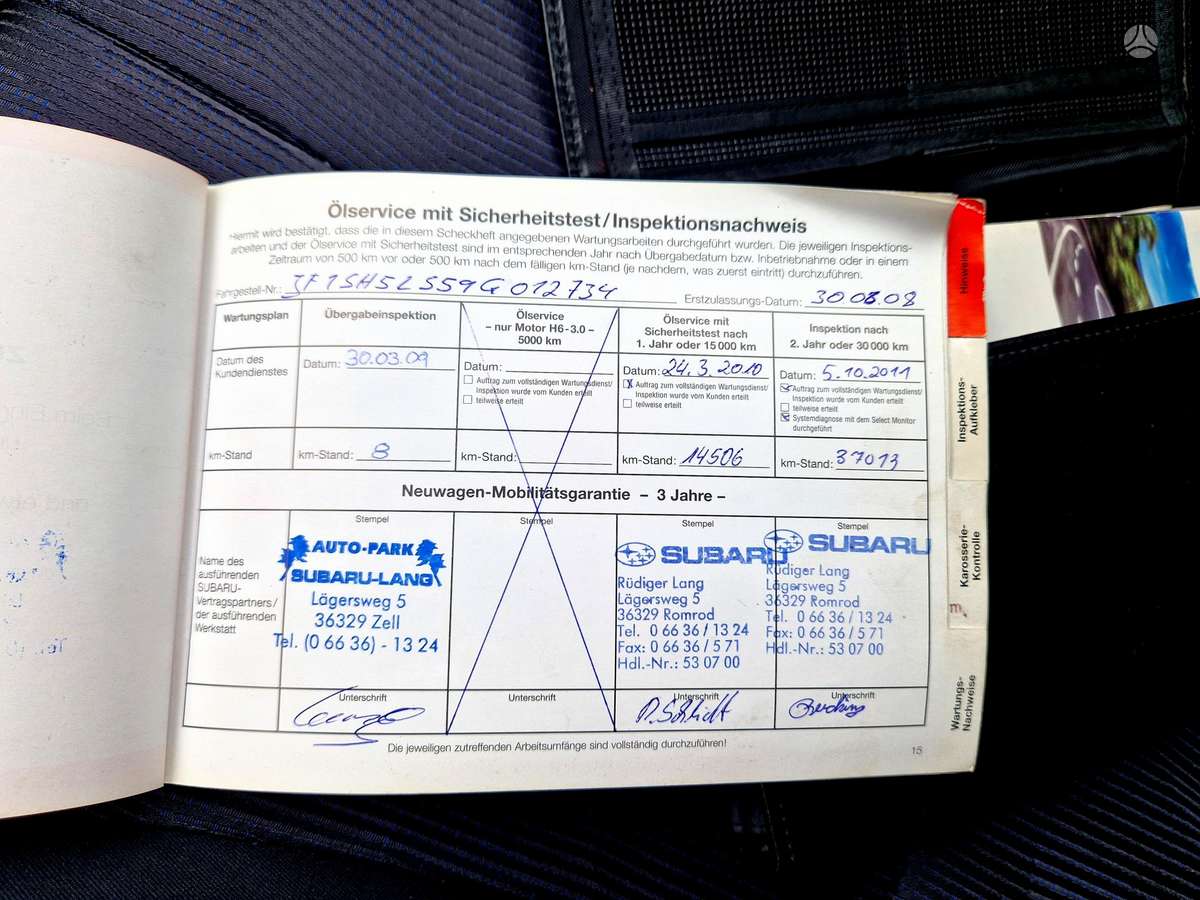 Ölservice mit Sicherheitstest/Inspektionsnachweis
Hiermit wird bestätigt, dass die in diesem Scheckheft angegebenen Wartungsarbeiten durchgeführt wurden. Die jeweiligen Inspektions-
arbeiten und der Ölservice mit Sicherheitstest sind im entsprechenden Jahr nach Übergabedatum bzw. Inbetriebnahme oder in einem
Zeitraum von 500 km vor oder 500 km nach dem fälligen km-Stand (je nachdem, was zuerst eintritt) durchzuführen.
Fahrgestell-Nr.: JF1SH5LS59G012734 Erstzulassungs-Datum: 30.03.09
Wartungsplan
Übergabeinspektion
Ölservice
– nur Motor H6-3.0 –
5000 km
Ölservice mit
Sicherheitstest nach
1. Jahr oder 15 000 km
Inspektion nach
2. Jahr oder 30 000 km
Datum des
Kundendienstes
Datum: 30.03.09
Datum:
Auftrag zum vollständigen Wartungsdienst/
Inspektion wurde vom Kunden erteilt
teilweise erteilt
Datum: 24.3.2010
Auftrag zum vollständigen Wartungsdienst/
Inspektion wurde vom Kunden erteilt
teilweise erteilt
Datum: 5.10.2011
Auftrag zum vollständigen Wartungsdienst/
Inspektion wurde vom Kunden erteilt
teilweise erteilt
Systemdiagnose mit dem Select Monitor
durchgeführt
km-Stand
km-Stand: 8
km-Stand:
km-Stand: 14506
km-Stand: 37013
Neuwagen-Mobilitätsgarantie – 3 Jahre –
Name des
ausführenden
SUBARU-
Vertragspartners/
der ausführenden
Werkstatt
Stempel
AUTO-PARK
SUBARU-LANG
Lägersweg 5
36329 Zell
Tel. (0 66 36) - 13 24
Stempel
Stempel
SUBARU
Rüdiger Lang
Lägersweg 5
36329 Romrod
Tel. 0 66 36 / 13 24
Fax: 0 66 36 / 5 71
Hdl.-Nr.: 53 07 00
Stempel
SUBARU
Rüdiger Lang
Lägersweg 5
36329 Romrod
Tel. 0 66 36 / 13 24
Fax: 0 66 36 / 5 71
Hdl.-Nr.: 53 07 00
Unterschrift
Unterschrift
Unterschrift
Unterschrift
Die jeweiligen zutreffenden Arbeitsumfänge sind vollständig durchzuführen!
15
Hinweise
Inspektions-
Aufkleber
Karosserie-
Kontrolle
Wartungs-
Nachweise